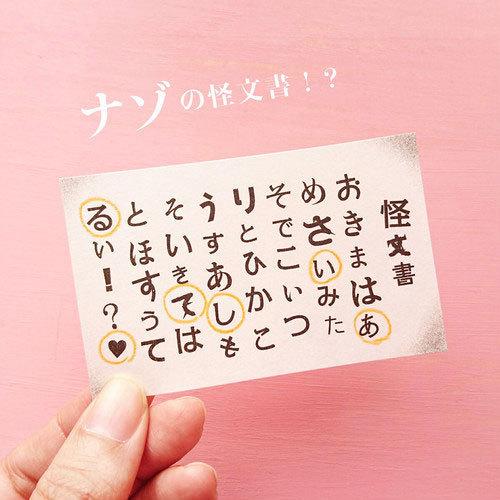 ナゾの怪文書！？
怪文書
おきまはあ
めさいみた
そでこいつ
りとひかこ
うすあしも
そいきては
とほすうて
るい！？♥